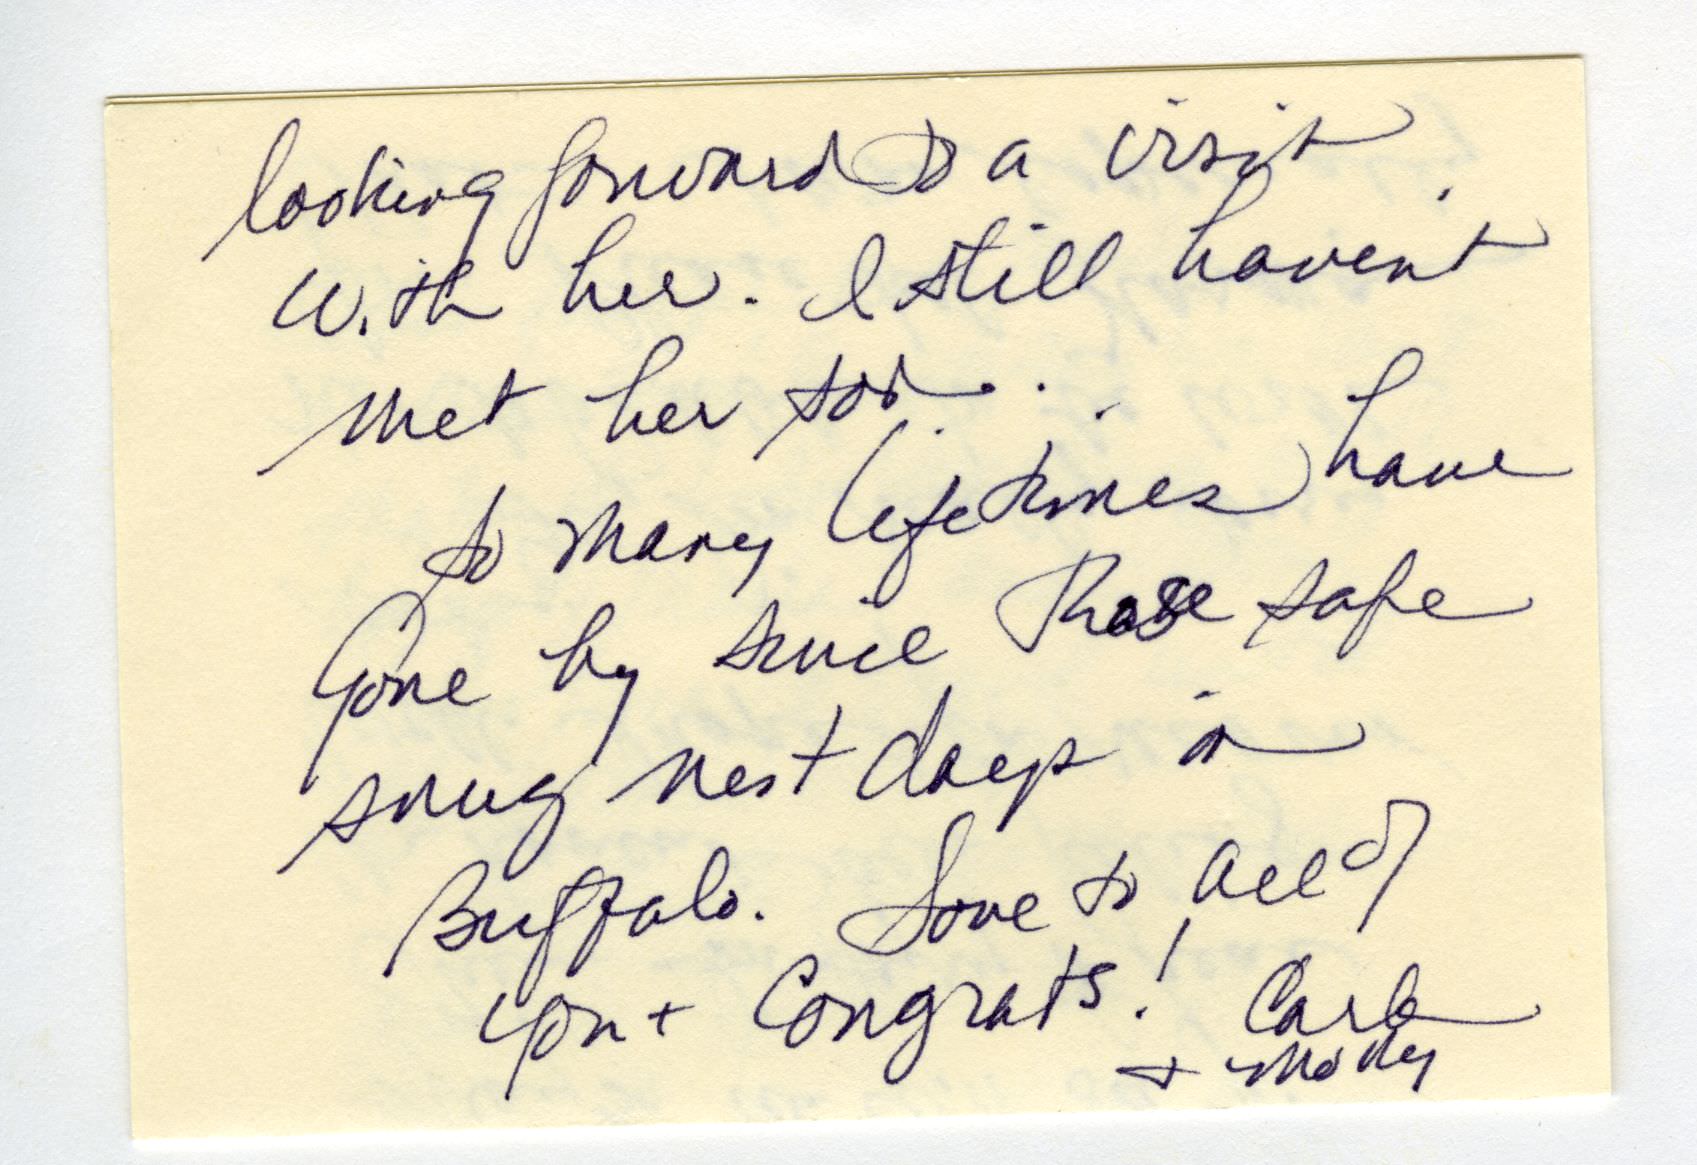 looking forward to a visit
with her. I still haven't
met her son.
to many lifetimes have
gone by since those safe
snug nest days in
Buffalo. Love to all of
you + Congrats! Carl
+ Molly